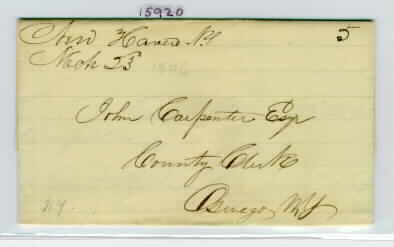 15920
New Haven N.Y
5
Mch 23
John Carpenter Esqr
County Clerk
Oswego N.Y
N.Y.